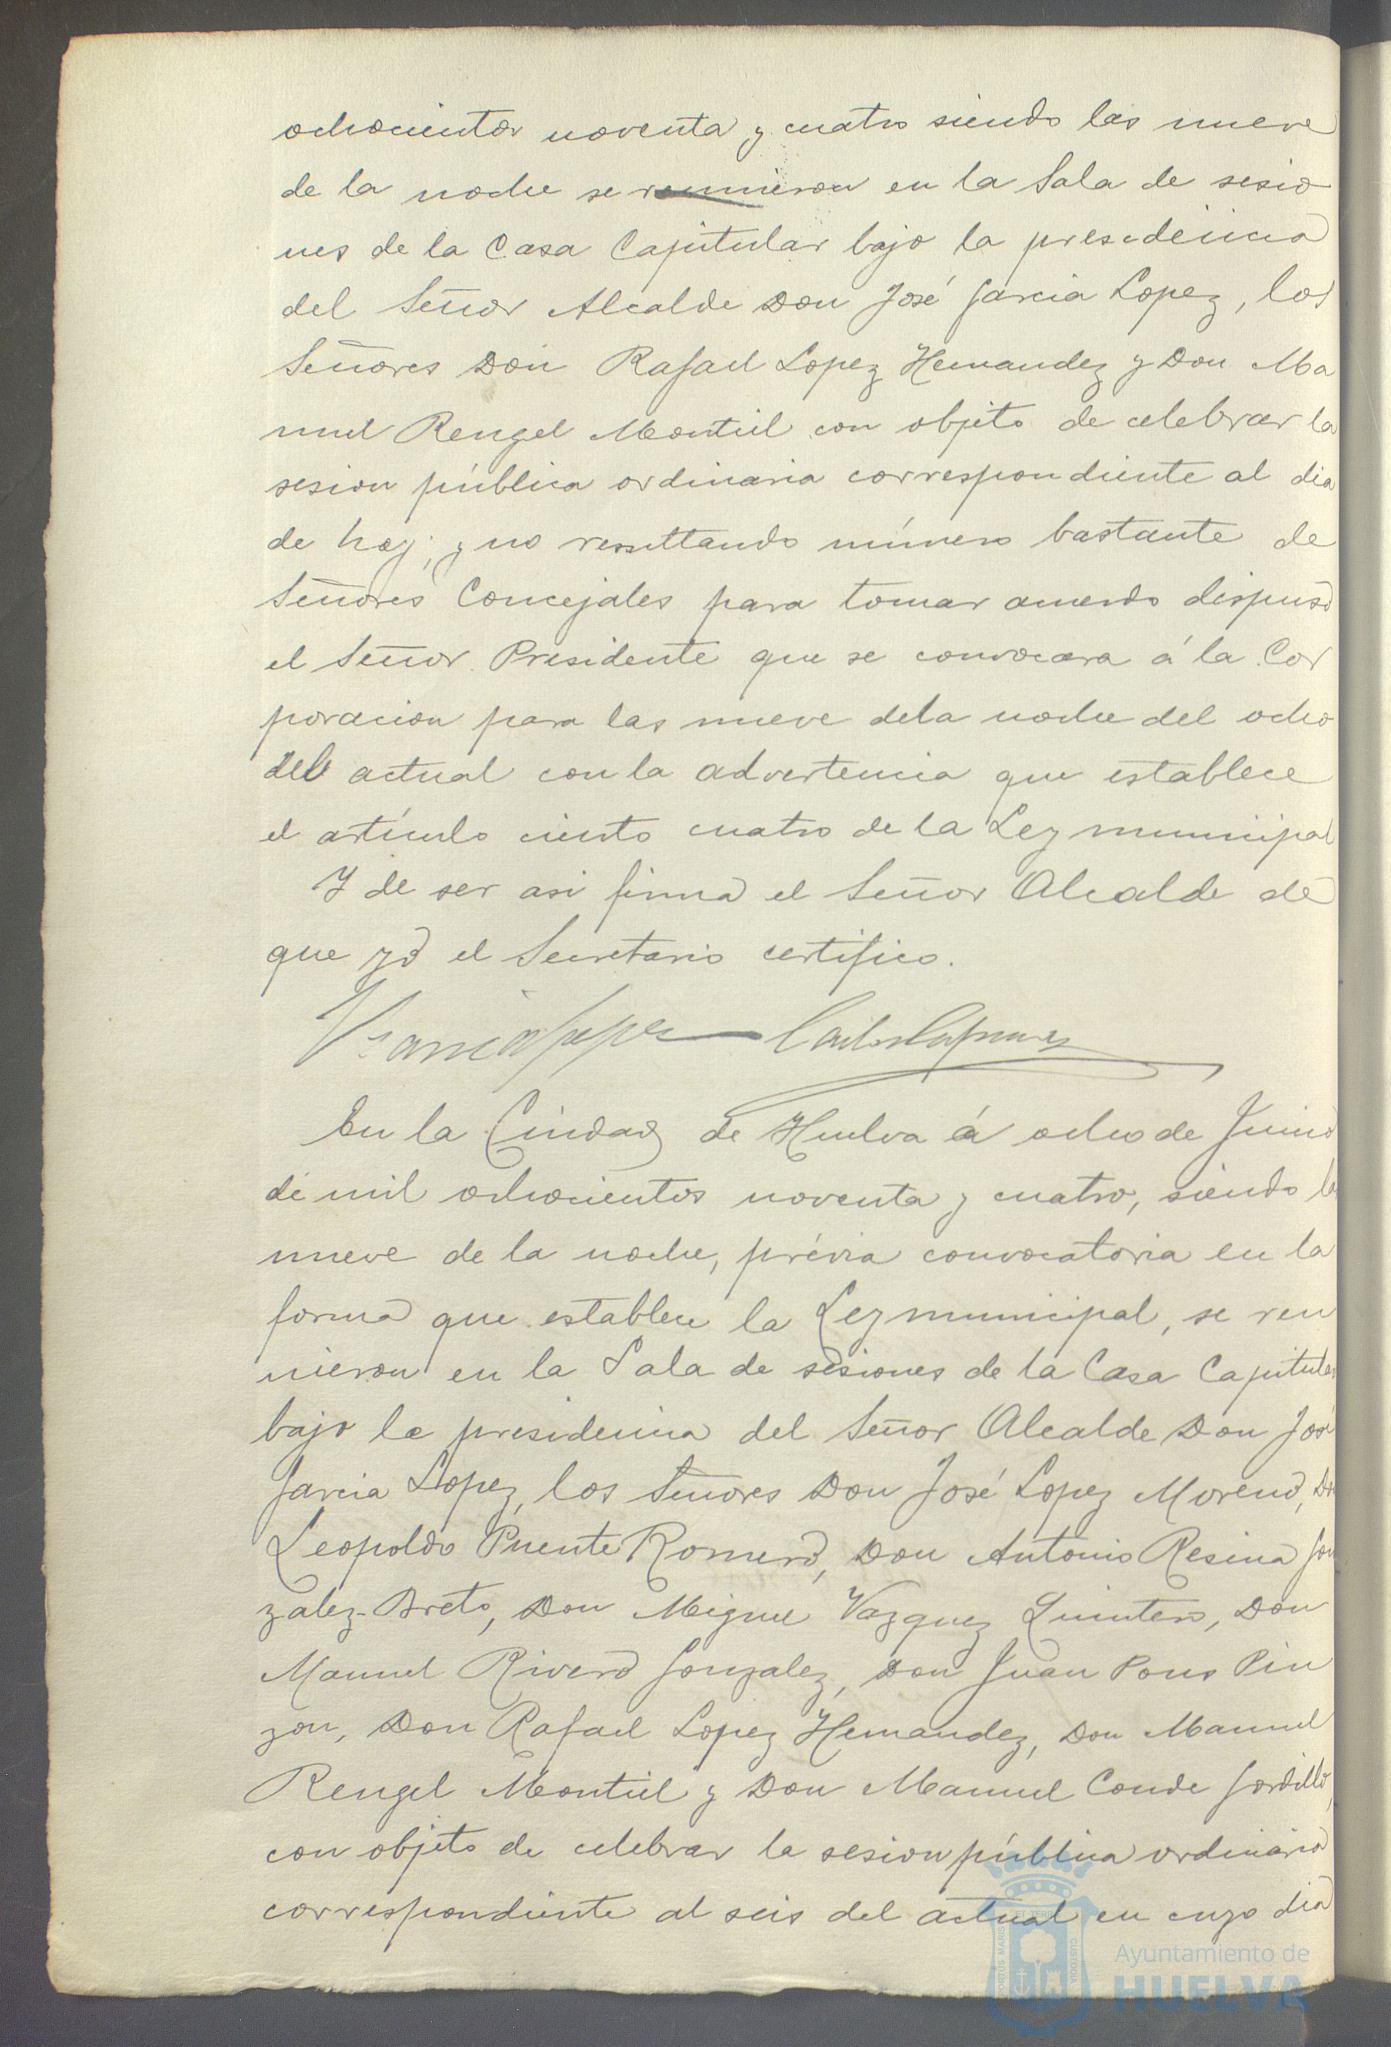 ochocientos noventa y cuatro siendo las nueve
de la noche se reunieron en la Sala de sesio
nes de la Casa Capitular bajo la presidencia
del Señor Alcalde Don José Garcia Lopez, los
Señores Don Rafael Lopez Hernandez y Don Ma
nuel Rengel Montiel con objeto de celebrar la
sesion pública ordinaria correspondiente al dia
de hoy; y no resultando número bastante de
Señores Concejales para tomar acuerdo dispuso
el Señor Presidente que se convocara á la Cor
poracion para las nueve dela noche del ocho
del actual con la advertencia que establece
el artículo ciento cuatro de la Ley municipal
Y de ser asi firma el Señor Alcalde de
que yo el Secretario certifico.
En la Ciudad de Huelva á ocho de Junio
de mil ochocientos noventa y cuatro, siendo las
nueve de la noche, prévia convocatoria en la
forma que establece la Ley municipal, se reu
nieron en la Sala de sesiones de la Casa Capitular
bajo la presidencia del Señor Alcalde Don José
Garcia Lopez, los Señores Don José Lopez Moreno, Don
Leopoldo Puente Romero, Don Antonio Resina Gon
zalez-Breto, Don Miguel Vazquez Quintero, Don
Manuel Rivero Gonzalez, Don Juan Pons Pin
zon, Don Rafael Lopez Hernandez, Don Manuel
Rengel Montiel y Don Manuel Conde Gordillo,
con objeto de celebrar la sesion pública ordinaria
correspondiente al seis del actual en cuyo dia
Ayuntamiento de
HUELVA